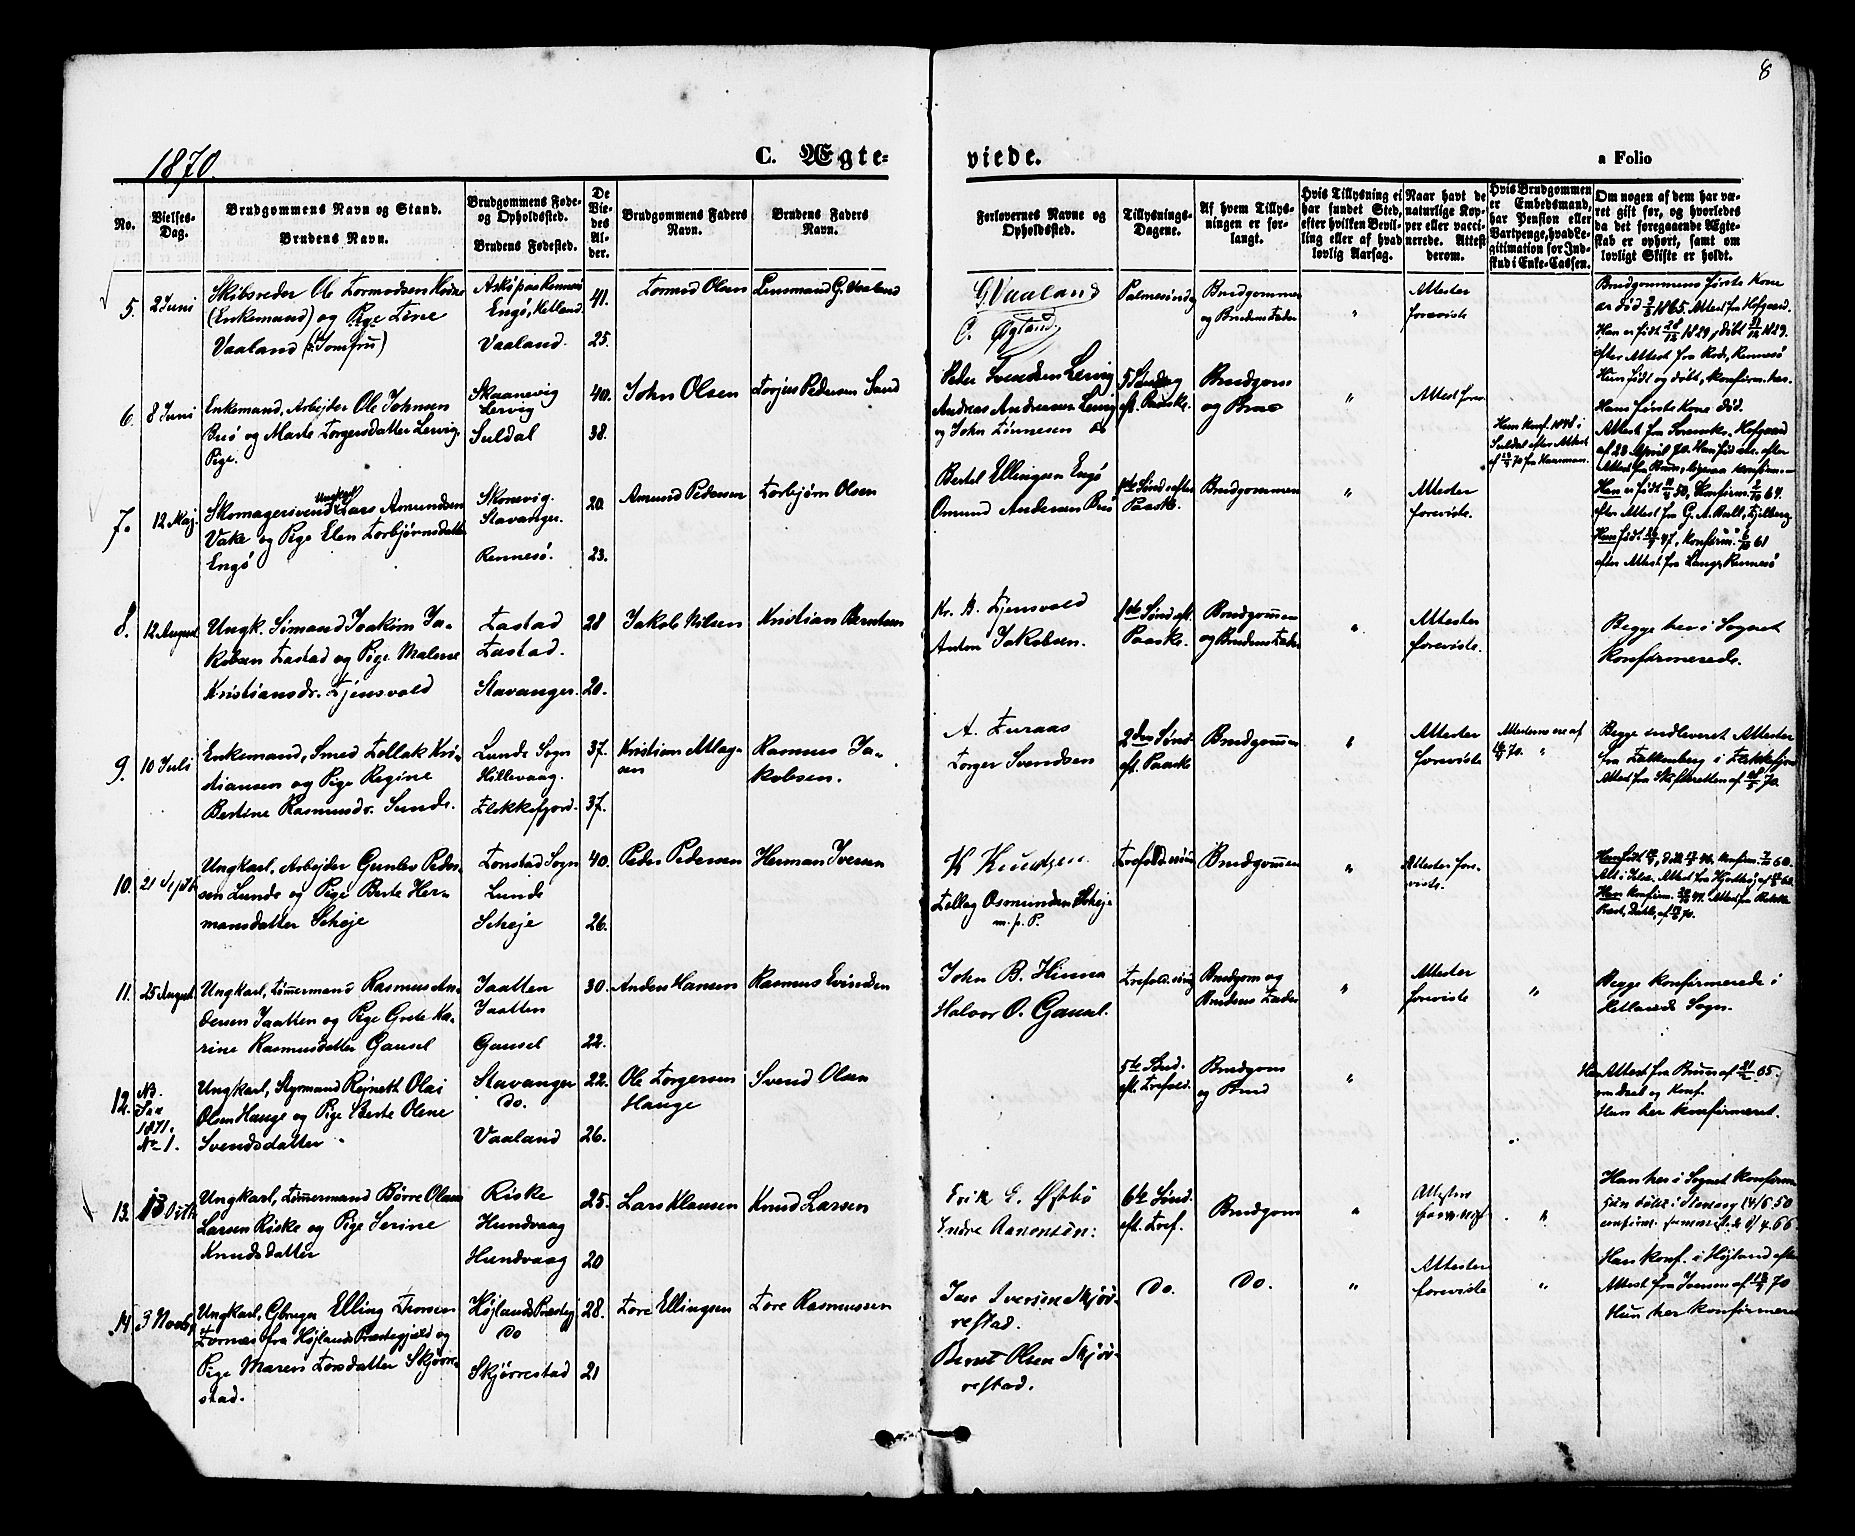 8
1870.
C. Ægte-
viede.
a Folio
No.
Vielses-
Dag.
Brudgommens Navn og Stand.
Brudens Navn.
Brudgommens Føde-
og Opholdssted.
Brudens Fødested.
De
Vie-
des
Al-
der.
Brudgommens Faders
Navn.
Brudens Faders
Navn.
Forlovernes Navne og
Opholdssted.
Tillysnings-
Dagene.
Af hvem Tillys-
ningen er for-
langt.
Hvis Tillysning ei
har fundet Sted,
efter hvilken Bevil-
ling eller af hvad
lovlig Aarsag.
Naar havt de
naturlige Kop-
per eller vacci-
nerede. Attest
derom.
Hvis Brudgommen
er Embedsmand,
har Pension eller
Vartpenge, hvad Le-
gitimation for Ind-
skud i Enke-Cassen.
Om nogen af dem har væ-
ret gift før, og hvorledes
da det foregaaende Ægte-
skab er ophørt, samt om
lovligt Skifte er holdt.
5. 2 Juni
Skibsreder Ole Tormodsen
(Enkemand) og Pige Tine
Vaaland (Jomfru)
Engø, Hetland
Vaaland.
41.
25.
Tormod Olsen
Lensmand G. Vaaland
G Vaaland
C. Øgland
Palmesøndag
Brudgommen
og Brudens Fader
"
Attester
foreviste.
Brudgommens første Kone
er død 1865. Attest fra Hofgaard.
Han er født 1829, døbt 1829.
efter Attest fra Rennesø
Hun født og døbt, konfirm. her.
6. 8 Juni
Enkemand, Arbejder Ole Johnsen
Brø og Marte Torgersdatter Lervig.
Pige.
Skaanevig
Lervig
Suldal
40.
38.
John Olsen
Torjus Pedersen Sand
Peder Svendsen Lervig
Andreas Andreasen Lervig
og John Tønnesen
5 Søndag
eft. Paaske.
Brudgom
og Brud
"
Attest forev.
Hun konf. i
Suldal efter Attest
Hans første Kone død.
Attest fra Hofgaard
af 23 April 70.
7. 12 Maj
Skomagersvend Ungkarl Lars Amundsen
Vake og Pige Elen Torbjørnsdatter
Engø
Skonevig.
Stavanger.
Rennesø.
20.
23.
Amund Pedersen
Torbjørn Olsen
Bertel Ellingsen Engø
Omund Andersen Brø
1ste Sønd. efter
Paaske.
Brudgommen
"
Attester
foreviste.
Han er født 50, Konfirm. 64.
efter Attest fra G. A. Fjelberg.
Hun født 47, konfirm. 61
efter Attest fra Lange, Rennesø
8. 12 August
Ungk. Sømand Joakim Ja-
kobsen Tastad og Pige Malene
Kristiansdr. Tjensvold
Tastad
Tastad.
Stavanger.
28
20.
Jakob Nilsen
Kristian Berntsen
Kr. B. Tjensvold
Anton Jakobsen.
1ste Sønd. eft.
Paaske.
Brudgommen
og Brudens Fader
"
Attester
foreviste.
Begge her i Sognet
konfirmerede.
9. 10 Juli
Enkemand, Smed Tollak Kri-
stiansen og Pige Regine
Bertine Rasmusdr. Sunde.
Lunde Sogn
Hillevaag.
Flekkefjord.
37.
37.
Kristian Atlag-
sen
Rasmus Ja-
kobsen.
A. Furaas
Torger Svendsen
2den Sønd.
eft. Paaske
Brudgommen
"
Attester
foreviste
"
Begge indleveret Attester
fra Falkenberg i Flekkefjord
Attest fra Skifteretten af 70.
10. 21 Septb.
Ungkarl, Arbejder Gunlev Peder-
sen Lunde og Pige Berte Her-
mansdatter Scheje
Tonstad Sogn
Lunde
Scheje
40.
26.
Peder Pedersen
Herman Iversen
K Knudsen
Tollag Osmundsen Scheje
m. p. P.
Trefold.
Brudgommen
"
Attester fore-
viste.
11. 25 August
Ungkarl, Tømmermand Rasmus An-
dersen Jaatten og Pige Grete Ka-
rine Rasmusdatter Gausel
Jaatten
Jaatten
Gausel
30.
22.
Anders Hansen
Rasmus Evindsen
John B. Hinna
Halvor O. Gausel.
Trefold.
Brudgom og
Brudens Fader
"
Attester
foreviste
"
Begge konfirmerede i
Hetlands Sogn.
12. NB.
Se
1871.
No 1.
Ungkarl, Styrmand Rejneth Olai
Olsen Hauge og Pige Berte Olene
Svendsdatter
Stavanger
Do.
Vaaland
22.
26.
Ole Torgersen
Hauge
Svend Olsen
5te Sønd.
eft. Trefold.
Brudgom
og Brud
"
Attest fra Bruun af 65.
og konf.
Hun her konfirmeret.
13. 13 Octb.
Ungkarl, Tømmermand Børre Olaus
Larsen Riske og Pige Serine
Knudsdatter
Riske
Hundvaag
Hundvaag
25.
20
Lars Klausen
Knud Larsen
Erik G. Østbø
Endre Aanensen:
6te Sønd.
eft. Tref.
Brudgom
"
Attester
"
Han her i Sognet konfirm.
14/6. 50
66
14. 3 Novbr
Ungkarl, Gbruger Elling Toresen
Tornes fra Højlands Præstegjeld og
Pige Maren Toresdatter Skjørre-
stad.
Højlands Præstegj.
Do
Skjørrestad
28.
21
Tore Ellingsen
Tore Rasmussen
Iversen Skjør-
restad.
Bernt Olsen Skjør-
restad.
Do.
Do.
"
Attester
foreviste
"
Han konf. i Højland efter
Attest fra Jensen af 70
Hun her konfirmeret